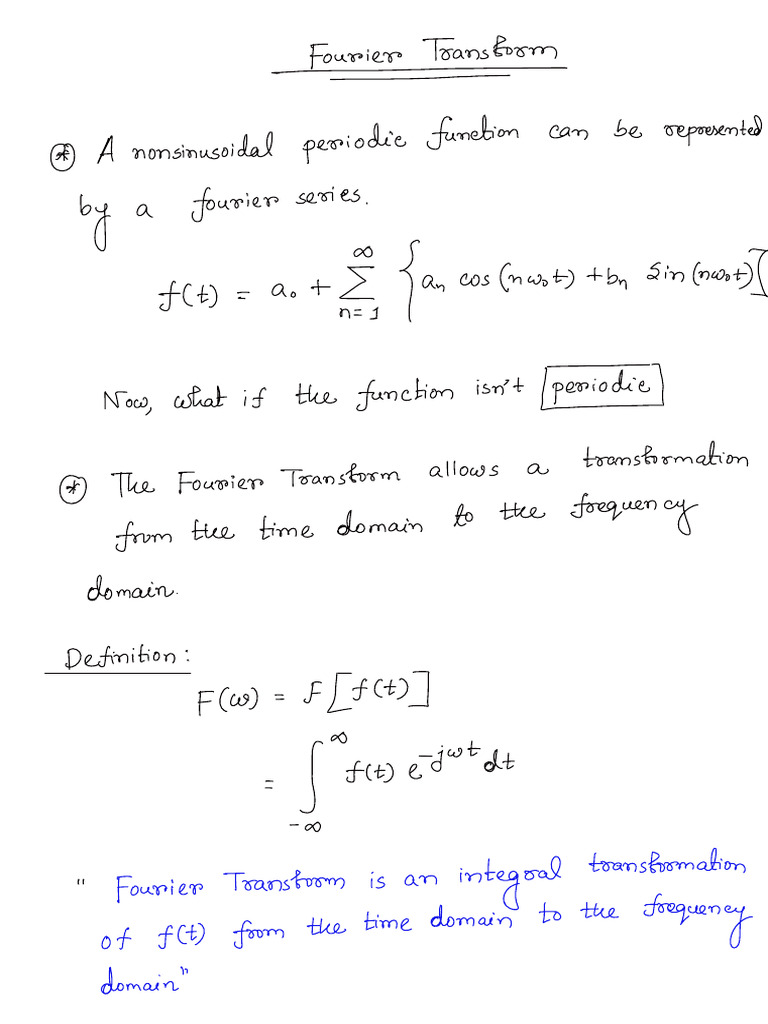 Fourier Transform
⊛ A nonsinusoidal periodic function can be represented
by a fourier series.
f(t) = a₀ + ∑_{n=1}^{∞} { aₙ cos (nω₀t) + bₙ Sin (nω₀t) ]
Now, what if the function isn't periodic
⊛ The Fourier Transform allows a transformation
from the time domain to the frequency
domain.
Definition:
F(ω) = F[f(t)]
= ∫_{-∞}^{∞} f(t) e^{-jωt} dt
" Fourier Transform is an integral transformation
of f(t) from the time domain to the frequency
domain"